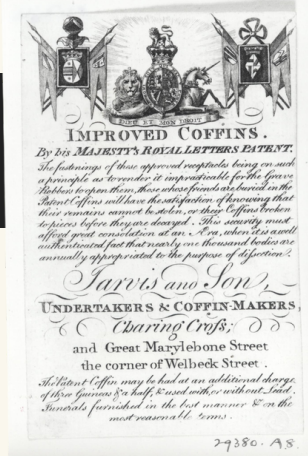 DIEU ET MON DROIT
IMPROVED COFFINS.
By his MAJESTY'S ROYAL LETTERS PATENT.
The fastenings of these approved receptacles being on such
a principle as to render it impracticable for the Grave
Robbers to open them, those whose friends are buried in the
Patent Coffins will have the satisfaction of knowing that
their remains cannot be stolen, or their Coffins broken
to pieces before they are decayed. This security must
afford great consolation at an Æra, when it is a well
authenticated fact that nearly one thousand bodies are
annually appropriated to the purpose of dissection.
Jarvis and Son,
UNDERTAKERS & COFFIN-MAKERS,
Charing Cross;
and Great Marylebone Street
the corner of Welbeck Street.
The Patent Coffin may be had at an additional charge
of three Guineas & a half, & used with, or without Lead.
Funerals furnished in the best manner & on the
most reasonable terms.
29380. A.8.